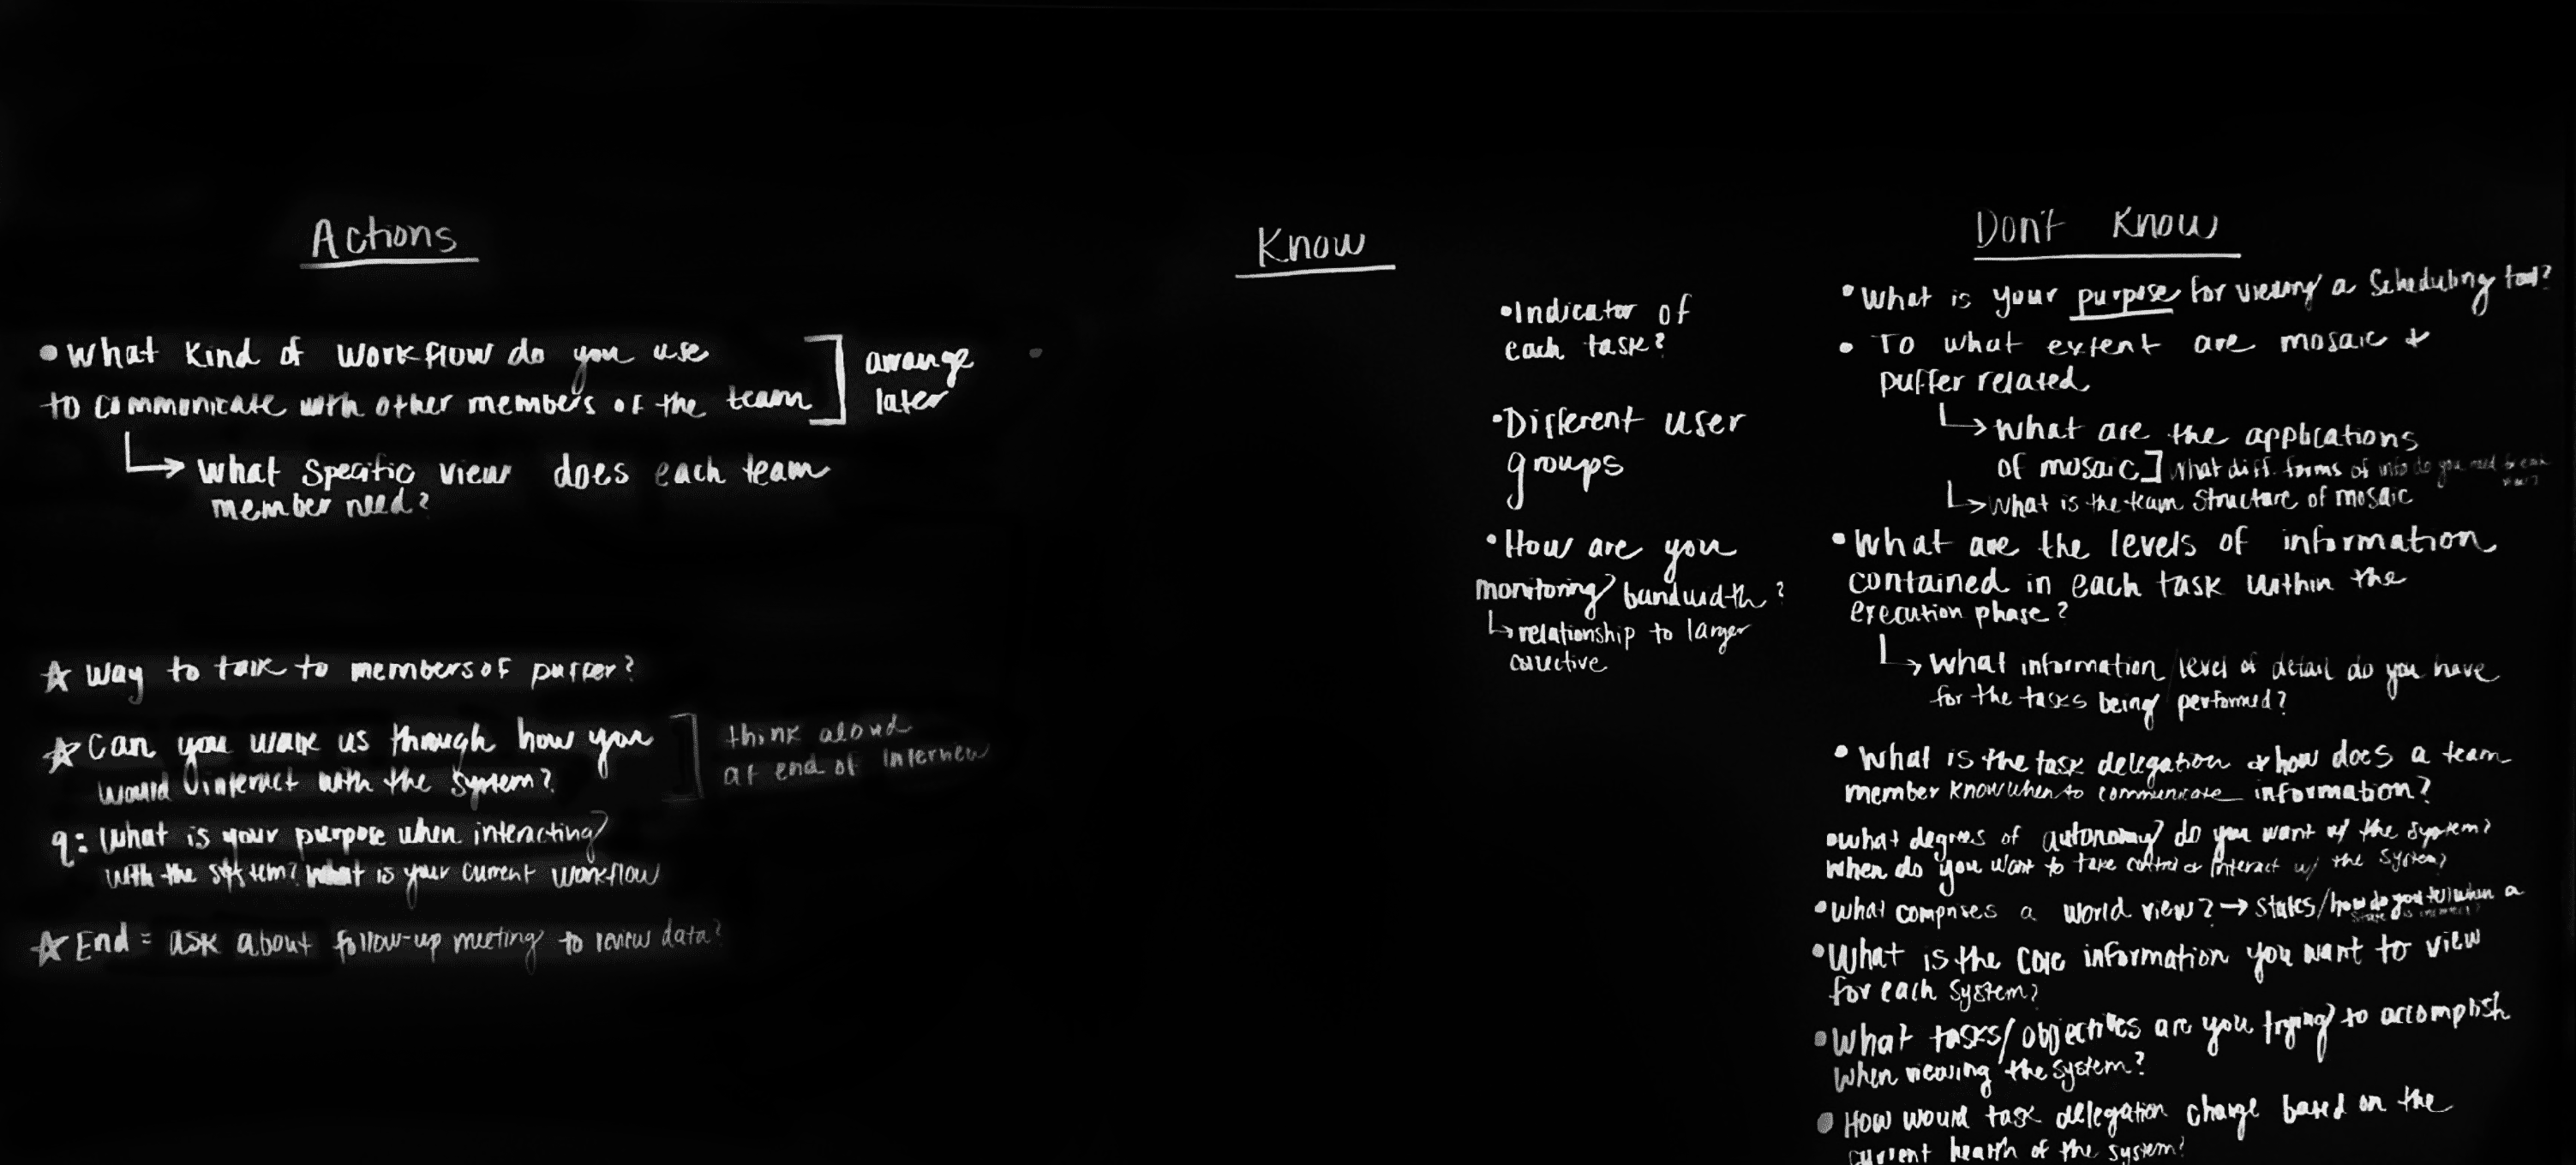 Actions
• What kind of workflow do you use
to communicate with other members of the team ] arrange later
↳ what specific view does each team
member need?
☆ way to talk to members of puffer?
☆ Can you walk us through how you
would interact with the system? ] think aloud at end of interview
q: What is your purpose when interacting
with the system? What is your current workflow
☆ End = ask about follow-up meeting to review data?
Know
• Indicator of
each task?
• Different user
groups
• How are you
monitoring bandwidth?
↳ relationship to larger
collective
Don't Know
• What is your purpose for viewing a scheduling tool?
• To what extent are mosaic +
puffer related
↳ what are the applications
of mosaic ] what diff. forms of info do you need for each
↳ What is the team structure of mosaic
• What are the levels of information
contained in each task within the
execution phase?
↳ What information/level of detail do you have
for the tasks being performed?
• What is the task delegation & how does a team
member know when to communicate information?
• what degrees of autonomy do you want w/ the system?
When do you want to take control or interact w/ the system?
• What comprises a world view? → States/how do you tell when a
state is incorrect?
• What is the core information you want to view
for each system?
• What tasks/objectives are you trying to accomplish
when viewing the system?
• How would task delegation change based on the
current health of the system?